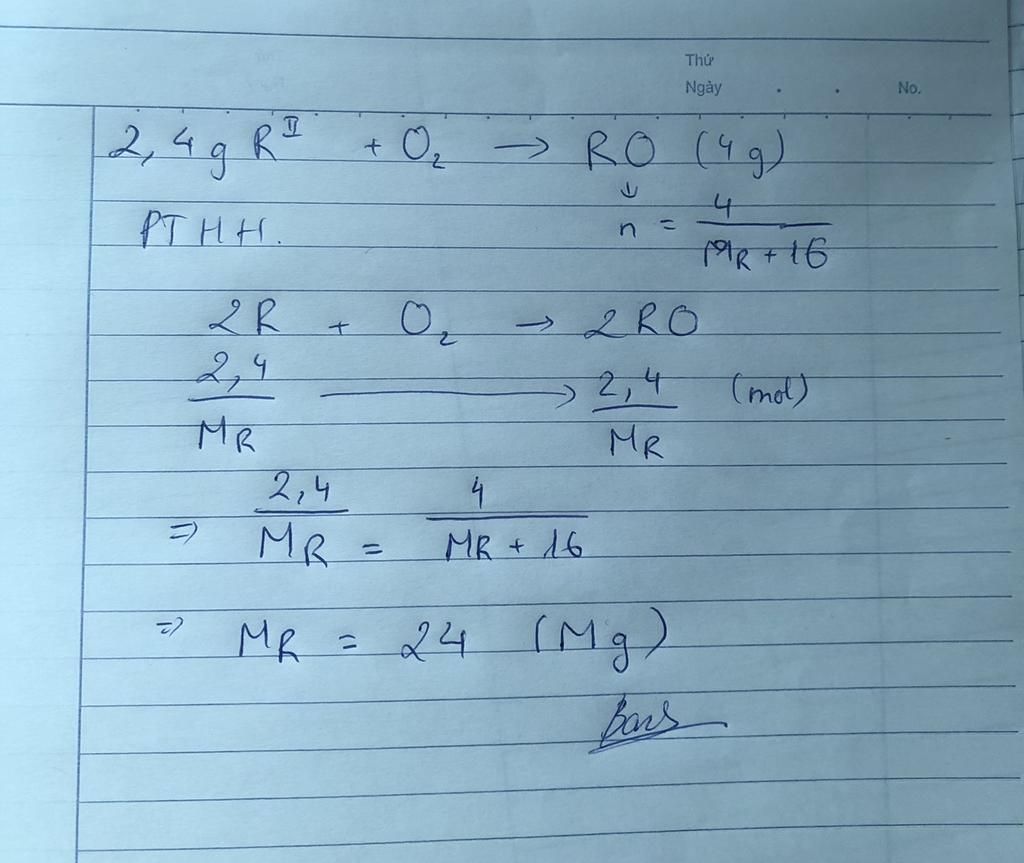 Thứ
Ngày . . No.
2,4g R^II + O₂ → RO (4g)
↓
PTHH. n = 4/(MR + 16)
2R + O₂ → 2RO
2,4/MR → 2,4/MR (mol)
=> 2,4/MR = 4/(MR + 16)
=> MR = 24 (Mg)